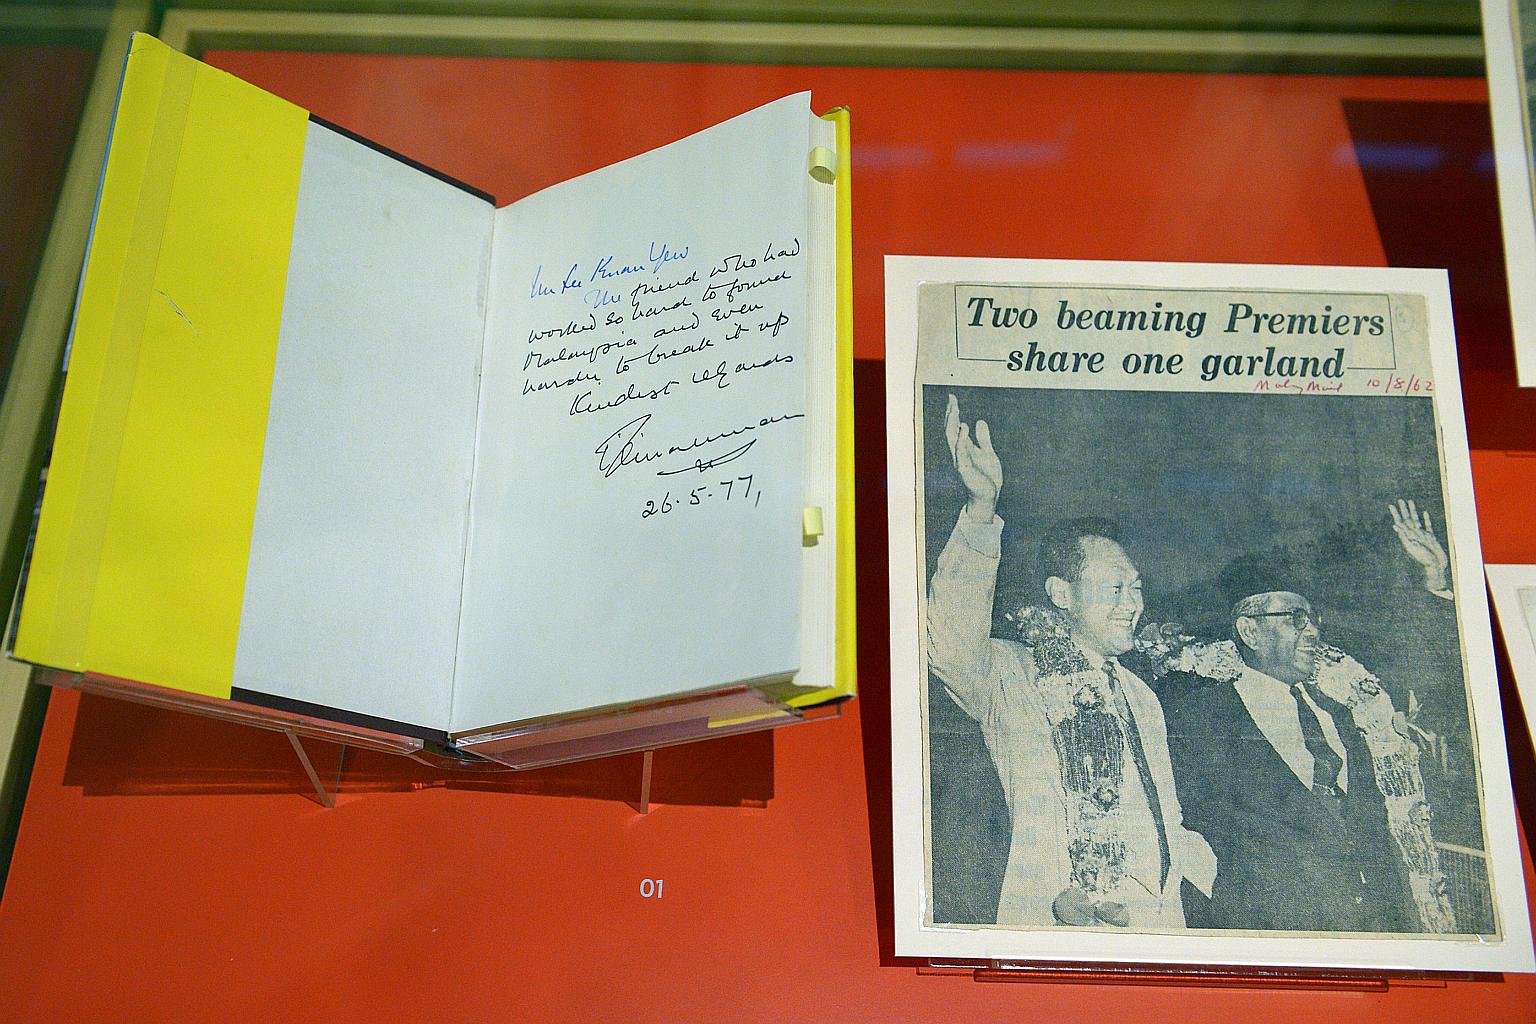 Mr Lee Kuan Yew
The friend who had
worked so hard to found
Malaysia and even
harder to break it up
Kindest regards
26.5.77,
01
Two beaming Premiers
share one garland
Malay Mail 10/8/62